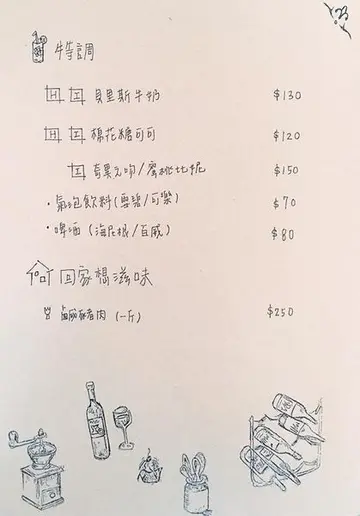 特調
H I 貝里斯牛奶 $130
H I 棉花糖可可 $120
I 奇異之吻/蜜桃比妮 $150
・氣泡飲料(雪碧/可樂) $70
・啤酒(海尼根/百威) $80
回家想滋味
豬肉(一斤) $250